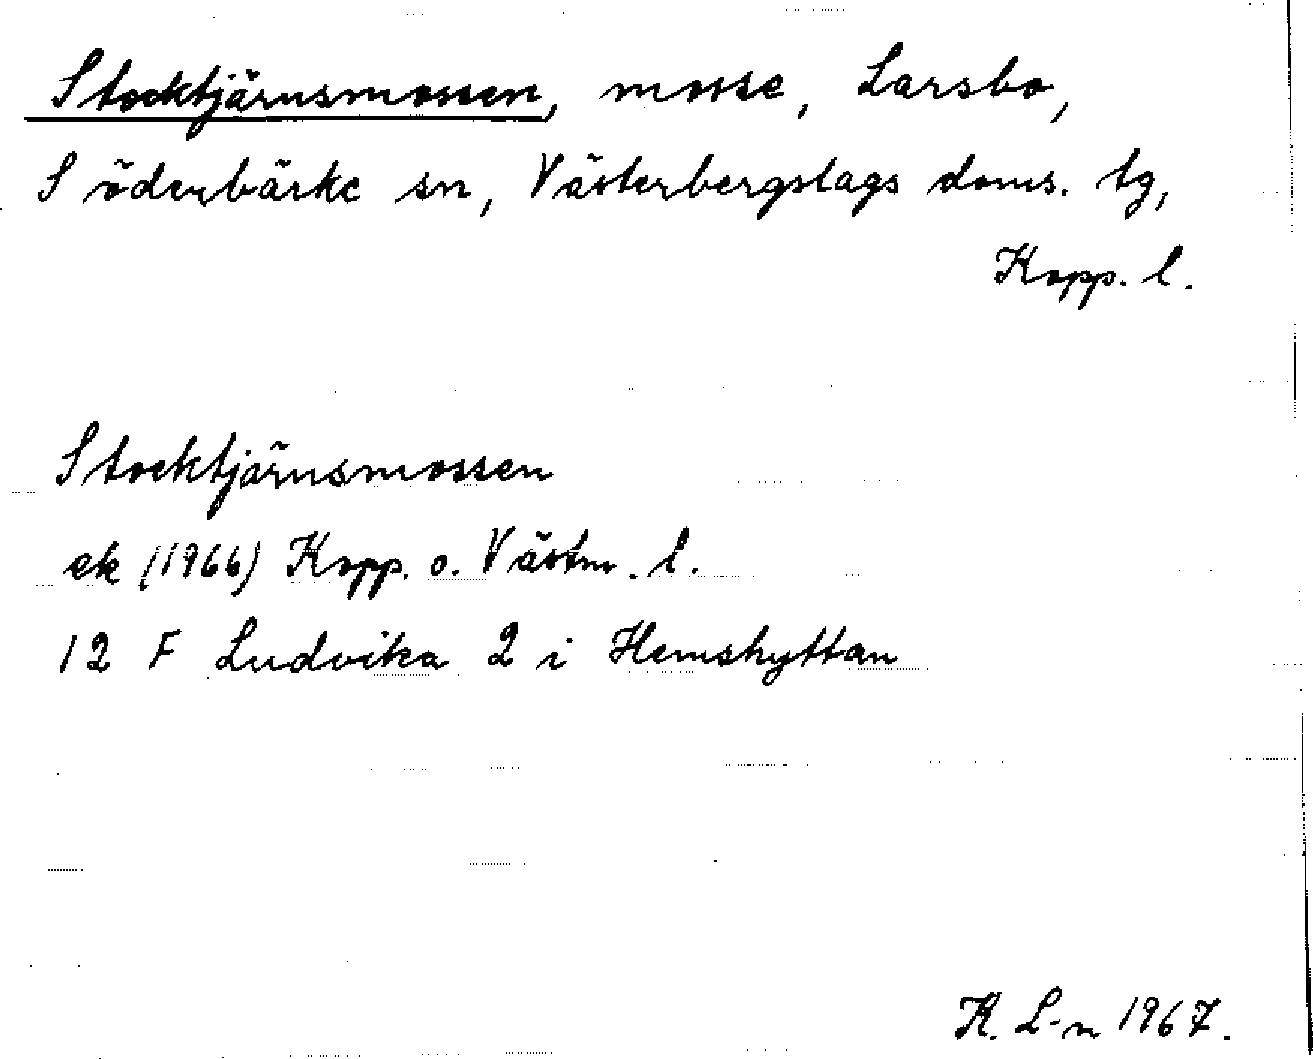 Stocktjärnsmossen, mosse, Larsbo,
Söderbärke sn, Västerbergslags doms. tg,
Kopp. l.
Stocktjärnsmossen
ek (1966) Kopp. o. Västm. l.
12 F Ludvika 2 i Hemshyttan
K. L-n 1967.